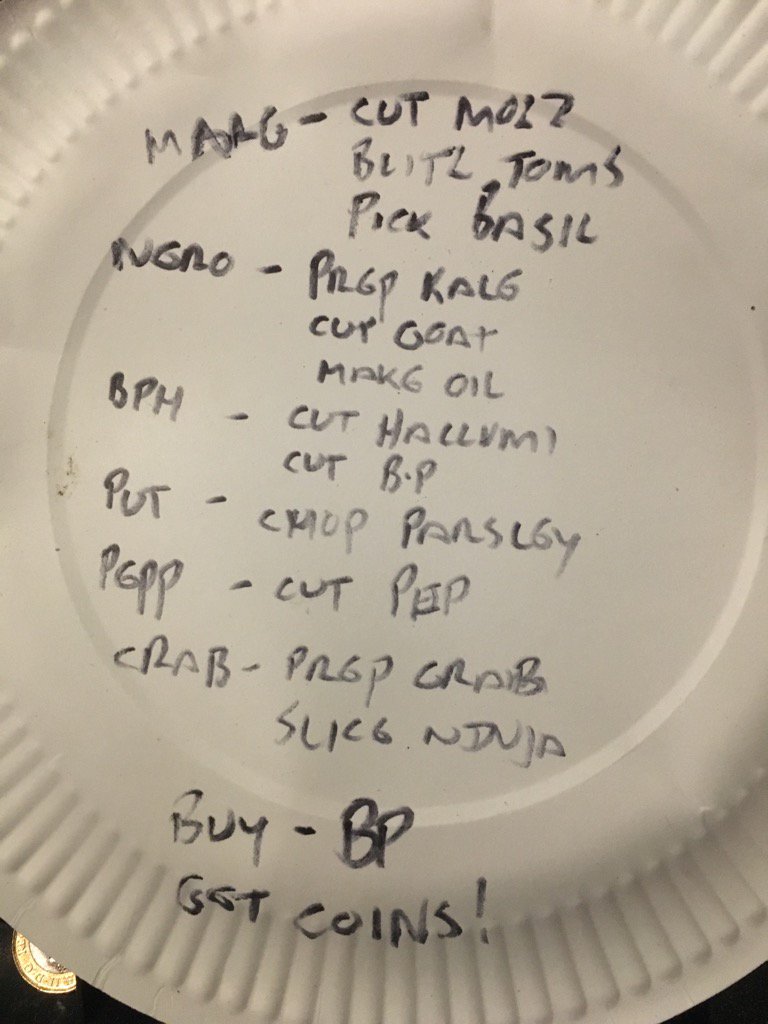 MARG - CUT MOZZ
BLITZ TOMS
PICK BASIL
NERO - PREP KALE
CUT GOAT
MAKE OIL
BPH - CUT HALLUMI
CUT B.P
PUT - CHOP PARSLEY
PEPP - CUT PEP
CRAB - PREP CRAB
SLICE NDUJA
BUY - BP
GET COINS!